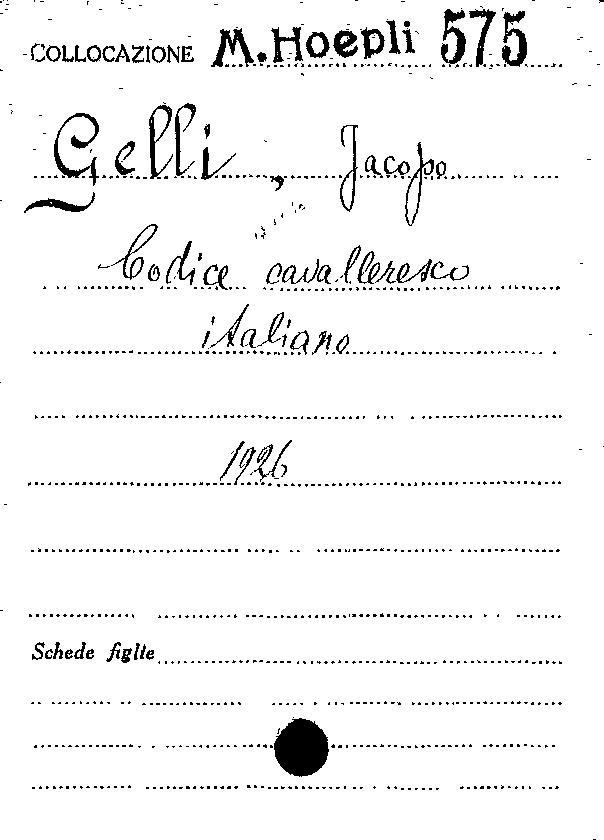 COLLOCAZIONE M. Hoepli 575
Gelli, Jacopo
Codice cavalleresco
italiano
1926
Schede figlie